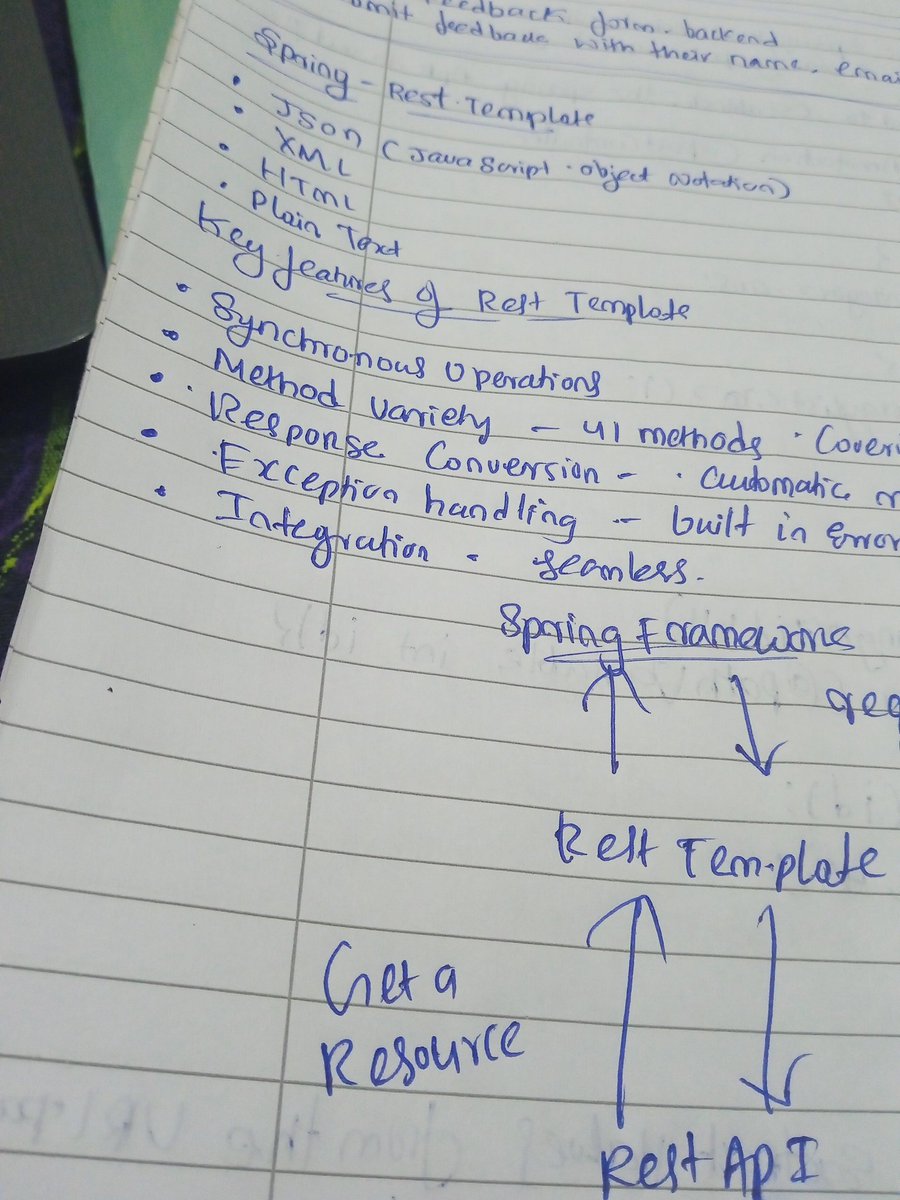 feedback form. backend
feedback with their name. emai
Spring - Rest Template
• JSON (JavaScript object Notation)
• XML
• HTML
• Plain Text
Key features of Rest Template
• Synchronous Operations
• Method variety - 41 methods . Cover
• Response Conversion - . automatic
• Exception handling - built in Error
• Integration - seamless.
Spring Framework
Rest Template
Get a
Resource
Rest API